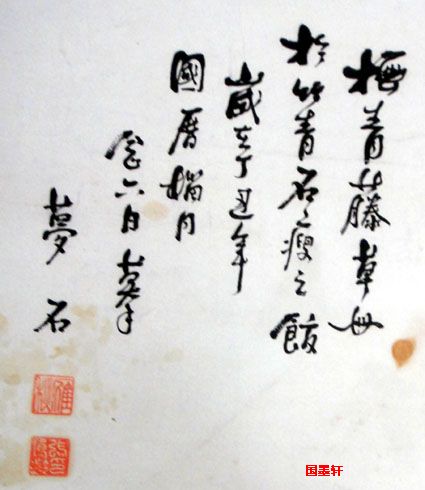 橅青藤草
於竹青石瘦之
歲在丁丑年
國曆榴月
念六日摹
夢石
国墨轩